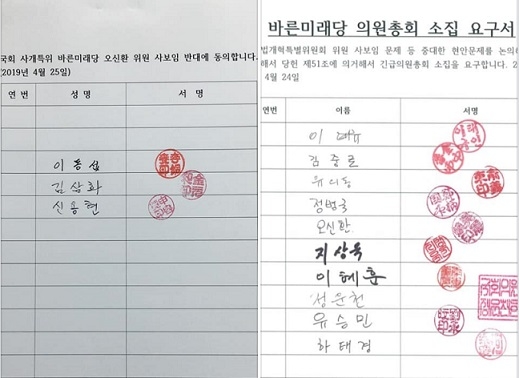 국회 사개특위 바른미래당 오신환 위원 사보임 반대에 동의합니다.
(2019년 4월 25일)
연 번 성 명 서 명
이동섭
김삼화
신용현
바른미래당 의원총회 소집 요구서
법개혁특별위원회 위원 사보임 문제 등 중대한 현안문제를 논의
해서 당헌 제51조에 의거해서 긴급의원총회 소집을 요구합니다.
4월 24일
연번 이름 서명
이태규
김중로
유의동
정병국
오신환
지상욱
이혜훈
정운천
유승민
하태경